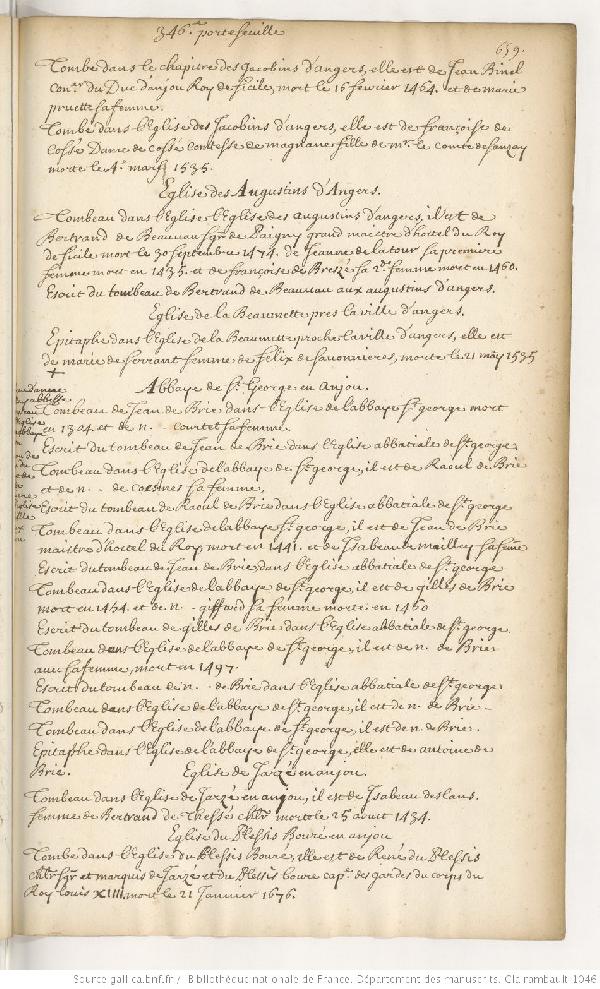 346.e portefeuille
659.
Tombe dans le chapitre des Jacobins d'angers, elle est de Jean Binel
con.er du Duc d'anjou Roy de sicile, mort le 16 février 1464. et de marie
pruette sa femme.
Tombe dans l'Eglise des Jacobins d'angers, elle est de françoise de
Cossé Dame de Cossé Comtesse de magnane fille de m.r le comte de sanzay
morte le 4.e 1535.
Eglise des Augustins d'Angers.
Tombeau dans l'Eglise l'Eglise des augustins d'angers, il est de
Bertrand de Beauvau sgr de Paigny grand maistre d'hotel du Roy
de sicile mort le 30 septembre 1474. de Jeanne de la tour sa premiere
femme mort en 1435. et de françoise de Brezé sa 2.de femme mort en 1460.
Escrit du tombeau de Bertrand de Beauvau aux augustins d'angers.
Eglise de la Beaumette pres la ville d'angers.
Epitaphe dans l'Eglise de la Beaumette proche la ville d'angers, elle est
de marie de ferrant femme de felix de savonnieres, morte le 21 may 1535
Abbaye de S.t George en anjou.
Tombeau de Jean de Brie dans l'Eglise de l'abbaye S.t george mort
en et de n. courtet sa femme.
Escrit du tombeau de Jean de Brie dans l'Eglise abbatiale de S.t george
Tombeau dans l'Eglise de l'abbaye de S.t george, il est de Raoul de Brie
et de n. - - de coesmes sa femme,
Escrit du tombeau de Raoul de Brie dans l'Eglise abbatiale de S.t george
Tombeau dans l'Eglise de l'abbaye S.t george, il est de Jean de Brie
maistre d'hostel du Roy mort en 1441. et de Isabeau de mailley sa feme
Escrit du tombeau de Jean de Brie dans l'Eglise abbatiale de S.t george
Tombeau dans l'Eglise de l'abbaye de S.t george, il est de gilles de Brie
mort en 1454 et de n. - giffard sa femme morte en 1460
Escrit du tombeau de gilles de Brie dans l'Eglise abbatiale de S.t george
Tombeau dans l'Eglise de l'abbaye de S.t george, il est de n. de Brie
sa femme, mort en 1497.
Escrit du tombeau de n. - de Brie dans l'Eglise abbatiale de S.t george
Tombeau dans l'Eglise de l'abbaye de S.t george, il est de n. de Brie -
Tombeau dans l'Eglise de l'abbaye de S.t george, il est de n. de Brie.
Epitaphe dans l'Eglise de l'abbaye de S.t george, elle est de antoine de
Brie.
Eglise de Jarzé en anjou.
Tombeau dans l'Eglise de Jarzé en anjou, il est de Isabeau des lans.
femme de Bertrand de chlr morte le 25 aout 1434.
Eglise du Plessis Bouré en anjou
Tombe dans l'Eglise du Plessis Bouré, elle est de René du Plessis
chlr sgr et marquis de Jarzé et du Plessis boure cap.e des gardes du corps du
Roy louis XIIII. mort le 21 Janvier 1676.
Source gallica.bnf.fr / Bibliothèque nationale de France. Département des manuscrits. Clairambault 1046